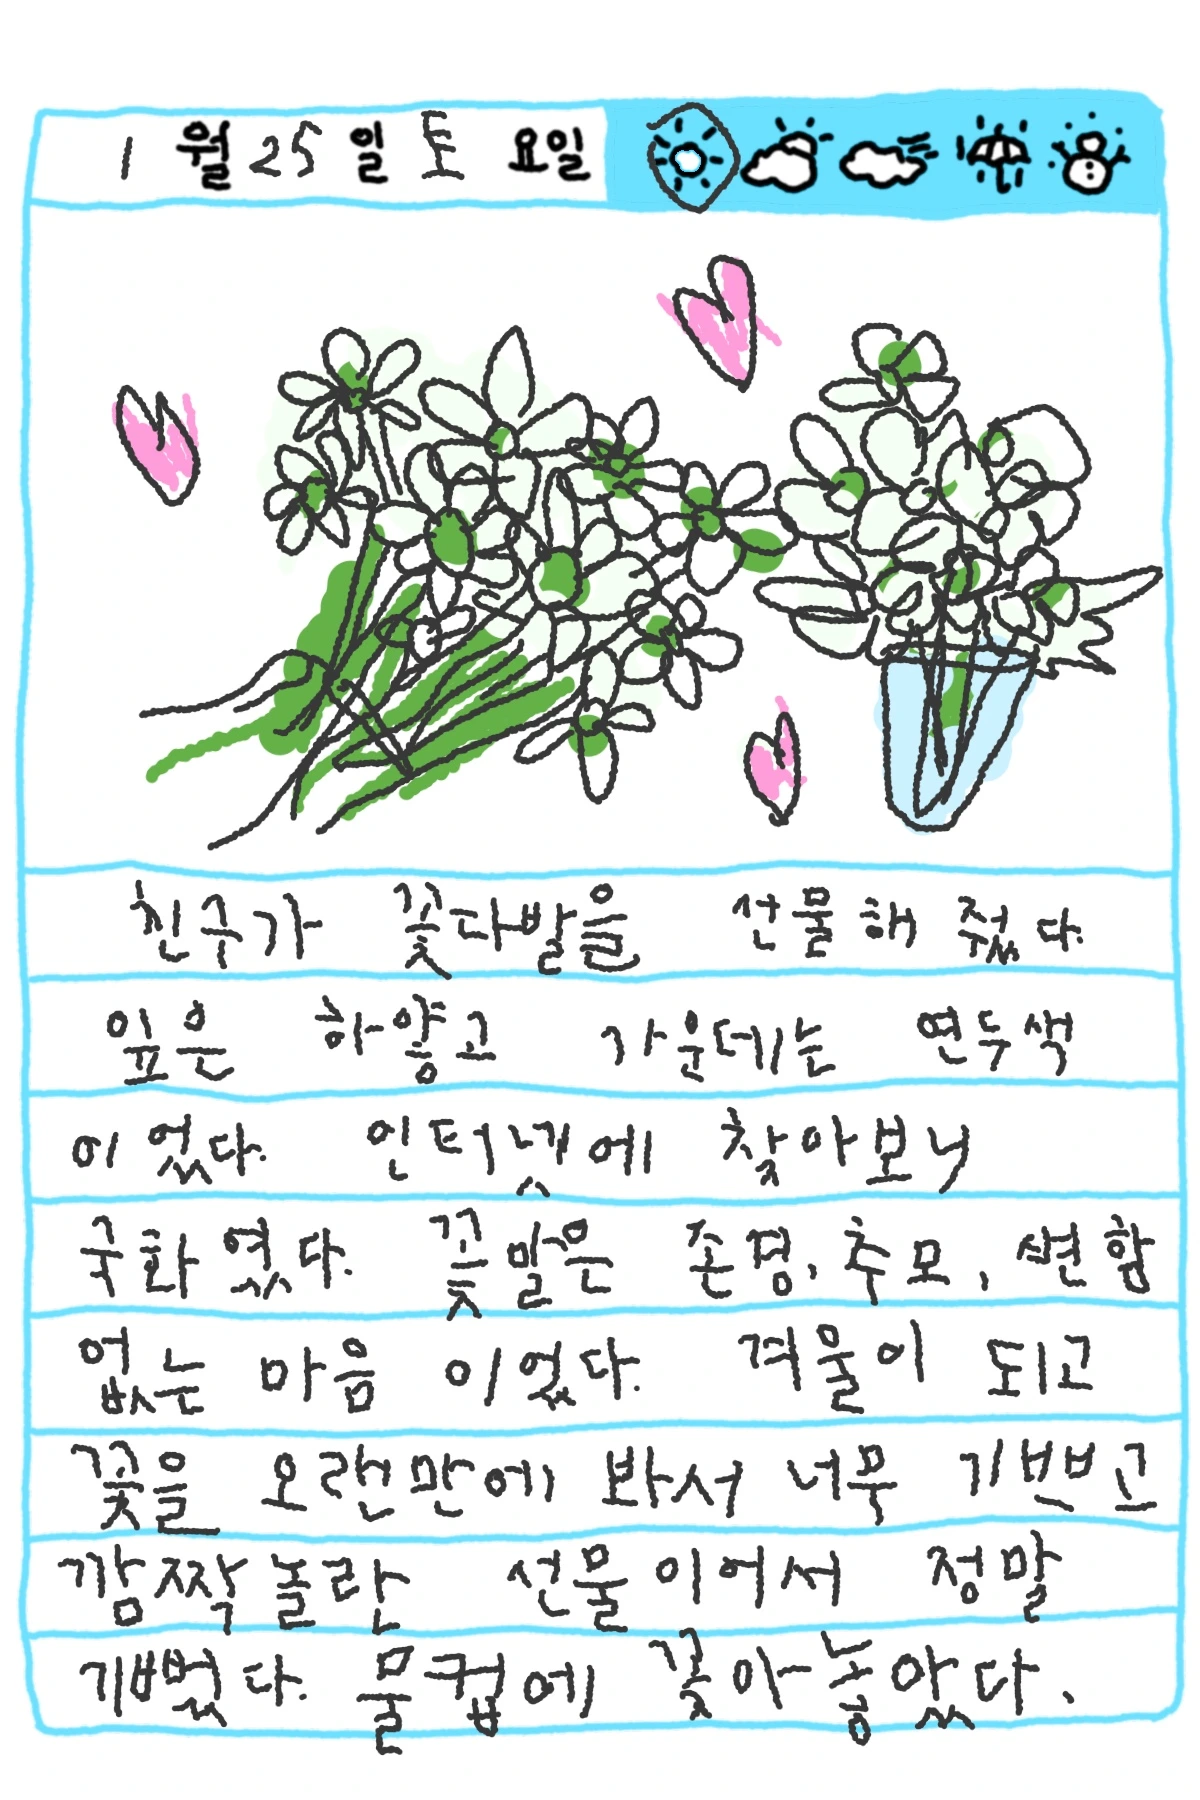 1월 25일 토요일
친구가 꽃다발을 선물해 줬다.
잎은 하얗고 가운데는 연두색
이었다. 인터넷에 찾아보니
국화였다. 꽃말은 존경, 추모, 변함
없는 마음이었다. 겨울이 되고
꽃을 오랜만에 봐서 너무 기쁘고
깜짝 놀란 선물이어서 정말
기뻤다. 물컵에 꽂아놓았다.